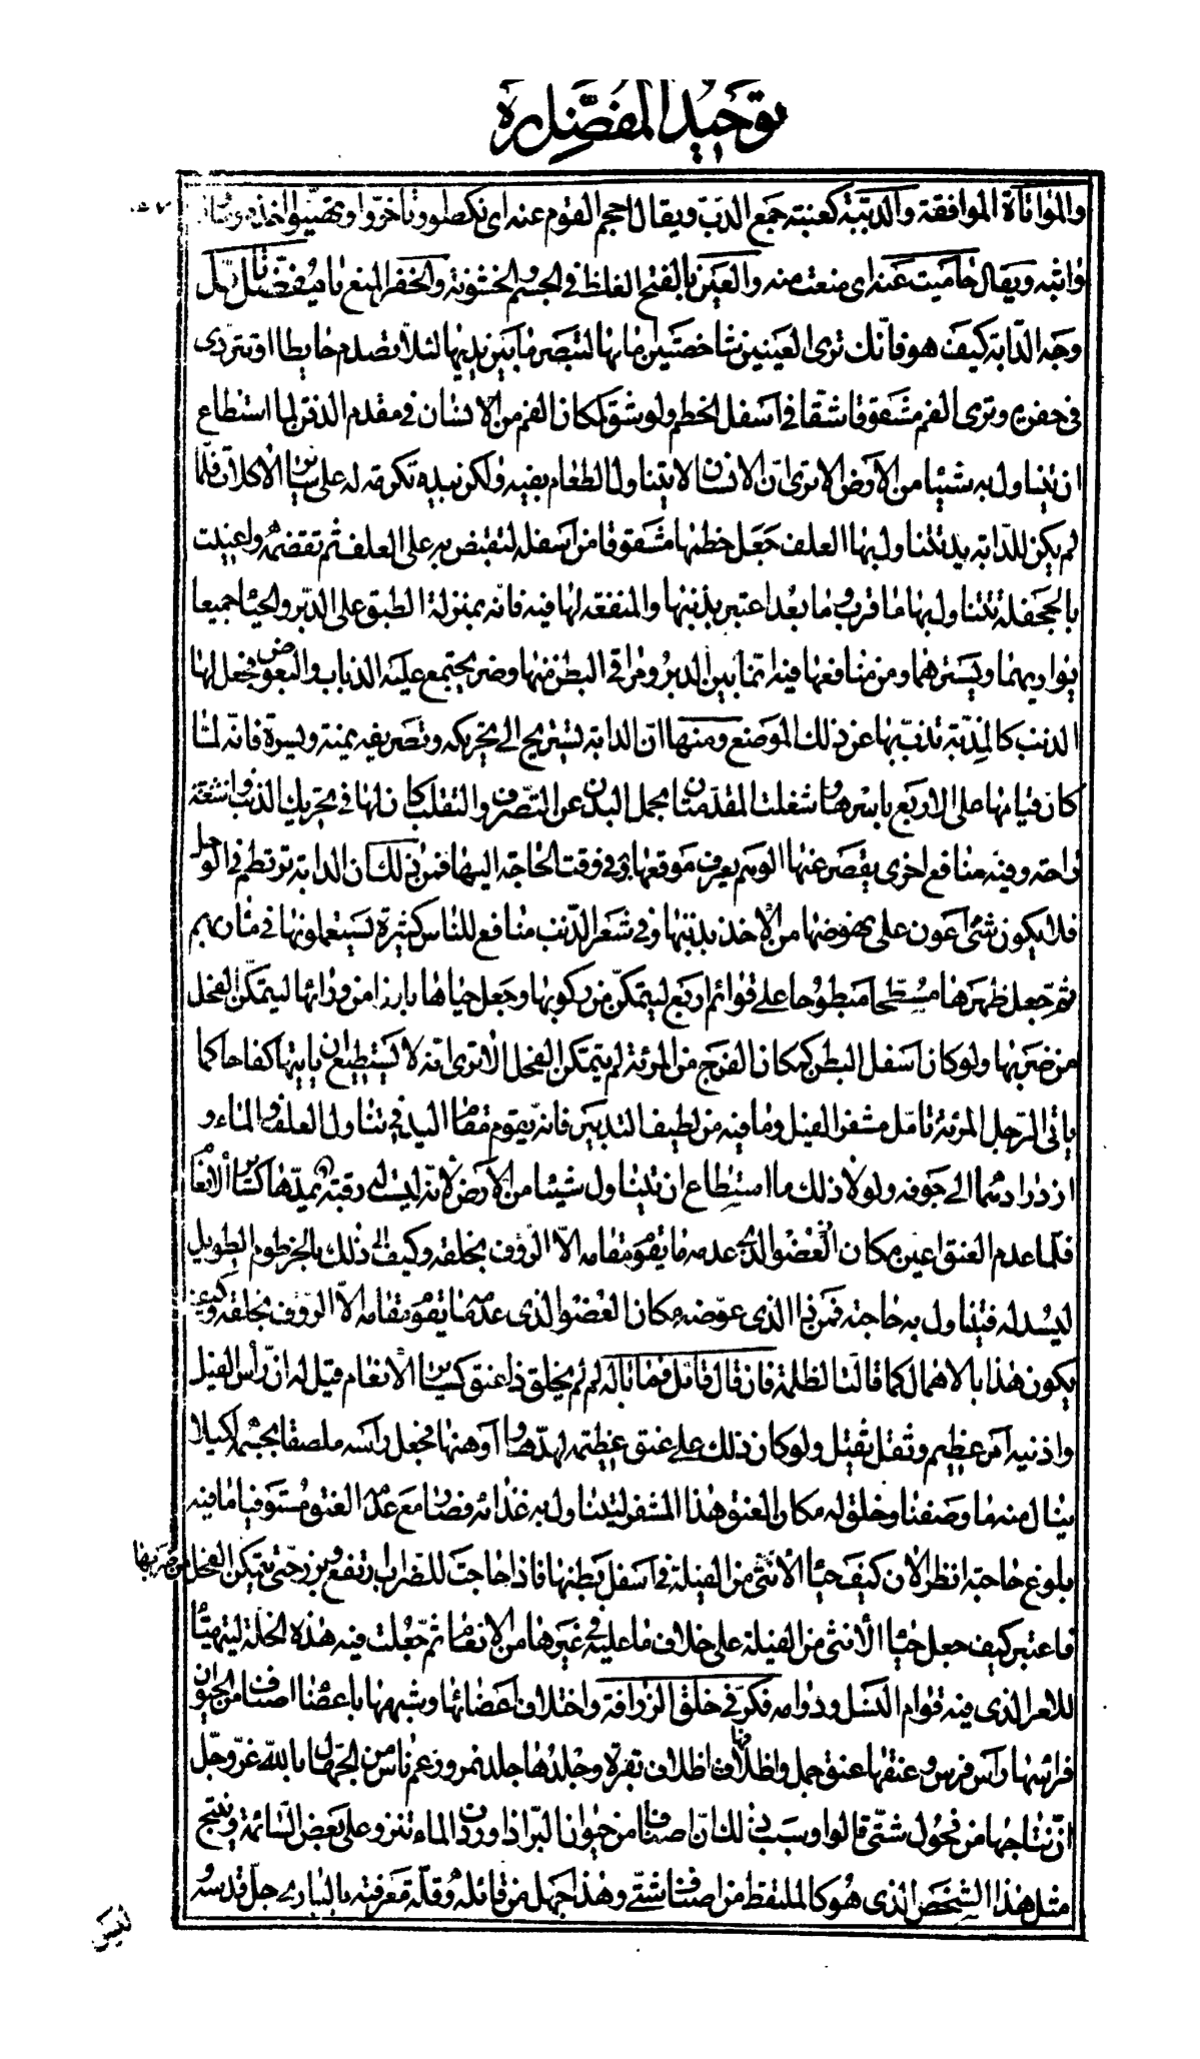 توحيد المفضل ره
والمواتاة الموافقة والدببة كعنبة جمع الدبّ ويقال احجم القوم عنه اى نكصوا وتاخروا وتهيّبوا اخذه
واثبه ويقال حاميت عنه اى منعت منه والعين بالفتح الغلظ فى الجسم والخشونة والخفر المنع يا مفضّل تأمّل
وجه الدّابة كيف هو فانّك ترى العينين شاخصتين امامها لتبصر ما بين يديها لئلّا تصدم حايطا او تتردى
فى حفرة وترى الفم مشقوقا شقا فى اسفل الخطم ولو شق كمكان الفم من الانسان فى مقدم الذقن لما استطاع
ان يتناول به شيئا من الارض الا ترى ان الانسان لا يتناول الطعام بفيه ولكن بيده تكرمة له على ساير الاكلات فلمّا
لم يكن للدّابة يد تتناول بها العلف جعل خطمها مشقوقا من اسفله لتقبض به على العلف ثم تقضمه واعينت
بالجحفلة تتناول بها ما قرب وما بعد اعتبر بذنبها والمنفعة لها فيه فانّه بمنزلة الطبق على الدبر والحيا جميعا
يواريهما ويسترهما ومن منافعها فيه انّ ما بين الدبر ومراقى البطن منها وضر يجتمع عليه الذباب والبعوض فجعل لها
الذنب كالمذبّة تذبّ بها عن ذلك الموضع ومنها ان الدابة تستريح الى تحريكه وتصريفه يمنة ويسرة فانّه لمّا
كان قيامها على الاربع باسرها وشغلت المقدمتان بحمل البدن عن التصرف والتقلب كان لها فى تحريك الذنب
راحة وفيه منافع اخرى يقصر عنها الوهم يعرف موقعها فى وقت الحاجة اليها فمن ذلك ان الدابة ترتطم فى الوحل
فلا يكون شئ اعون على نهوضها من الاخذ بذنبها وفى شعر الذنب منافع للناس كثيرة يستعملونها فى مآربهم
ثم جعل ظهرها مسطّحا مبطوحا على قوائم اربع ليتمكّن من ركوبها وجعل حياها بارزا من ورائها ليتمكّن الفحل
من ضربها ولو كان اسفل البطن كمكان الفرج من المرئة لم يتمكن الفحل الا ترى انه لا يستطيع ان ياتيها كفاحا كما
ياتى الرجل المرئة تامّل مشفر الفيل وما فيه من لطيف التدبير فانه يقوم مقام اليد فى تناول العلف والماء و
ازدرادهما الى جوفه ولو لا ذلك ما استطاع ان يتناول شيئا من الارض لانّه ليست له رقبة يمدّها كساير الانعام
فلما عدم العنق اعين مكان
ليسدله فيتناول به حاجته فمن ذا الذى عوّضه مكان العضو الذى عدمه ما يقوم مقامه الّا الرؤف بخلقه وكيف
يكون هذا بالاهمال كما قالت الظلمة فان قال قائل فما باله لم لم يخلق ذا عنق كساير الانعام قيل له ان رأس الفيل
واذنيه امر عظيم وثقل ثقيل ولو كان ذلك على عنق عظيمة لهدّها واوهنها فجعل رأسه ملصقا بجسمه لكيلا
ينال منه ما وصفنا وخلق له مكان العنق هذا المشفر ليتناول به غذائه فصار مع عدم العنق مستوفيا ما فيه
بلوغ حاجته انظر الان كيف حيا الانثى من الفيلة فى اسفل بطنها فاذا هاجت للضراب ارتفع وبرز حتى يتمكن الفحل من ضربها
فاعتبر كيف جعل حيا الانثى من الفيلة على خلاف ما عليه فى غيرها من الانعام ثم جعلت فيه هذه الخلة ليتهيّا
للامر الذى فيه قوام النسل ودوامه فكرّ فى خلق الزرافة واختلاف اعضائها وشبهها باعضا اصناف من الحيوان
فرأسها رأس فرس وعنقها عنق جمل واظلافها اظلاف بقرة وجلدها جلد نمر وزعم ناس من الجهال بالله عزّ وجلّ
انّ نتاجها من فحول شتّى قالوا وسبب ذلك انّ اصنافا من حيوان البرّ اذا وردت الماء تنزو على بعض السّائمة وينتج
مثل هذا الشخص الذى هو كالملتقط من اصناف شتّى وهذا جهل من قائله وقلّة معرفته بالبارى جلّ قدسه و
ليس